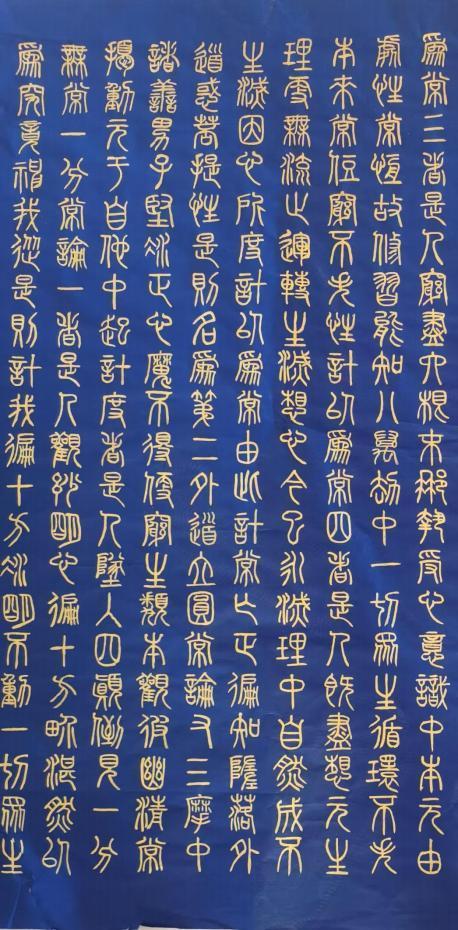 為常三者是人窮盡六根末那執受心意識中本元由
處性常恆故修習能知八萬劫中一切眾生循環不失
本來常住窮不失性計以為常四者是人既盡想元生
理更無流止運轉生滅想心今已永滅理中自然成不
生滅因心所度計以為常由此計常亡正徧知墮落外
道惑菩提性是則名為第二外道立圓常論又三摩中
諸善男子堅凝正心魔不得便窮生類本觀彼幽清常
擾動元于自他中起計度者是人墜入四顛倒見一分
無常一分常論一者是人觀妙明心徧十方界湛然以
為究竟神我從是則計我徧十方凝明不動一切眾生